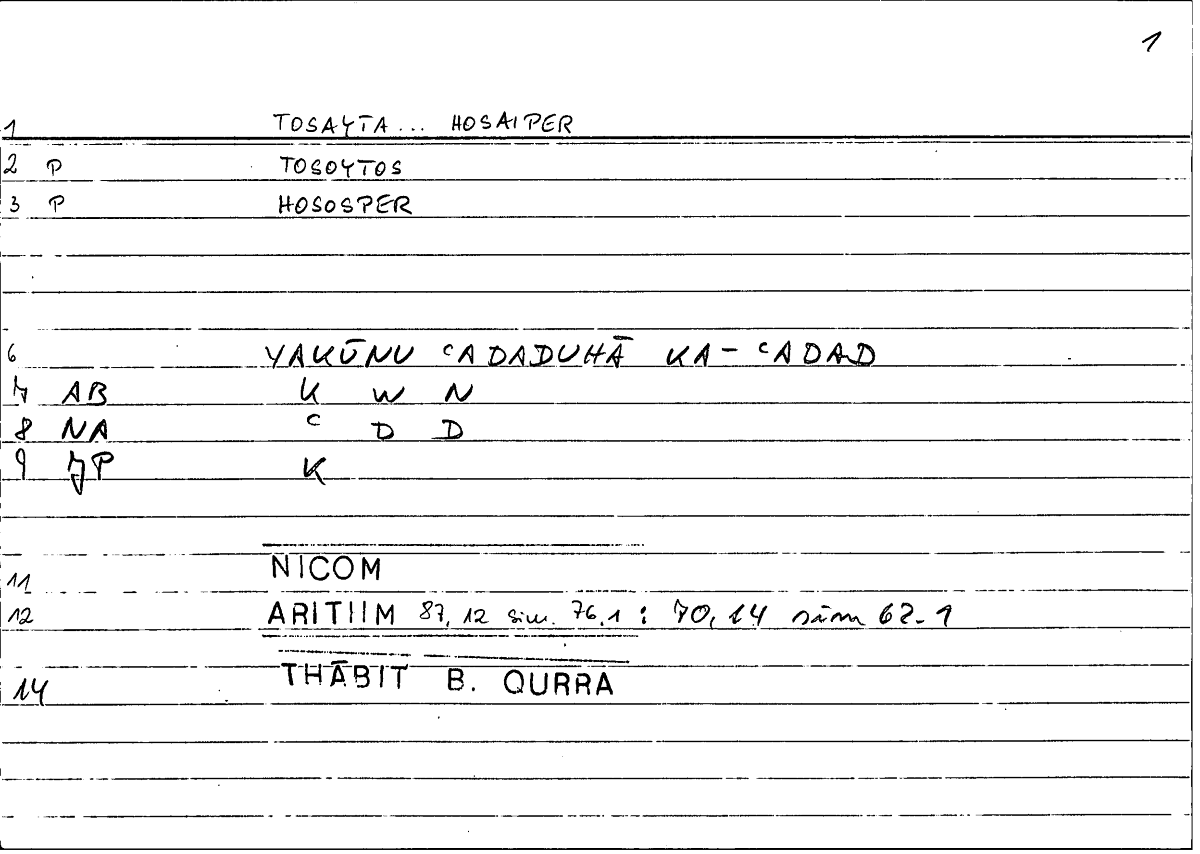 1
1 TOSAYTA... HOSAIPER
2 P TOSOYTOS
3 P HOSOSPER
6 YAKŪNU ᶜADADUHĀ KA-ᶜADAD
7 AB K W N
8 NA ᶜ D D
9 JP K
11 NICOM
12 ARITIIM 87, 12 sim. 76.1 : 70, 14 sim 62.1
14 THĀBIT B. QURRA